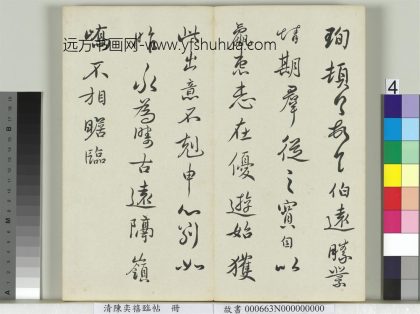 远方书画网-www.yfshuhua.com
珣頓首頓首伯遠勝業
情期羣從之寶自以
羸患志在優遊始獲
此出意不剋申分別如
昨永為疇古遠隔嶺
嶠不相瞻臨
4
清陳奕禧臨帖 冊
故書 000663N000000000